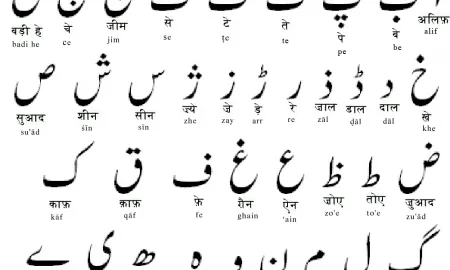 बड़ी हे चे जीम से टे ते पे बे अलिफ़
badi he ce jim se ṭe te pe be alif
خ د ڈ ذ ر ڑ ز ژ س ش ص
सुआद शीन सीन ज्ये जे ड़े रे जाल डाल दाल खे
su'ād śīn sīn zhe zay arr re zāl ḍāl dāl khe
ض ط ظ ع غ ف ق ک
काफ़ क़ाफ़ फ़े ग़ैन ऐन जोए तोए जुआद
kāf qāf fe ghain 'ain zo'e to'e zu'ād
گ ل م ن و ہ ھ ی ے